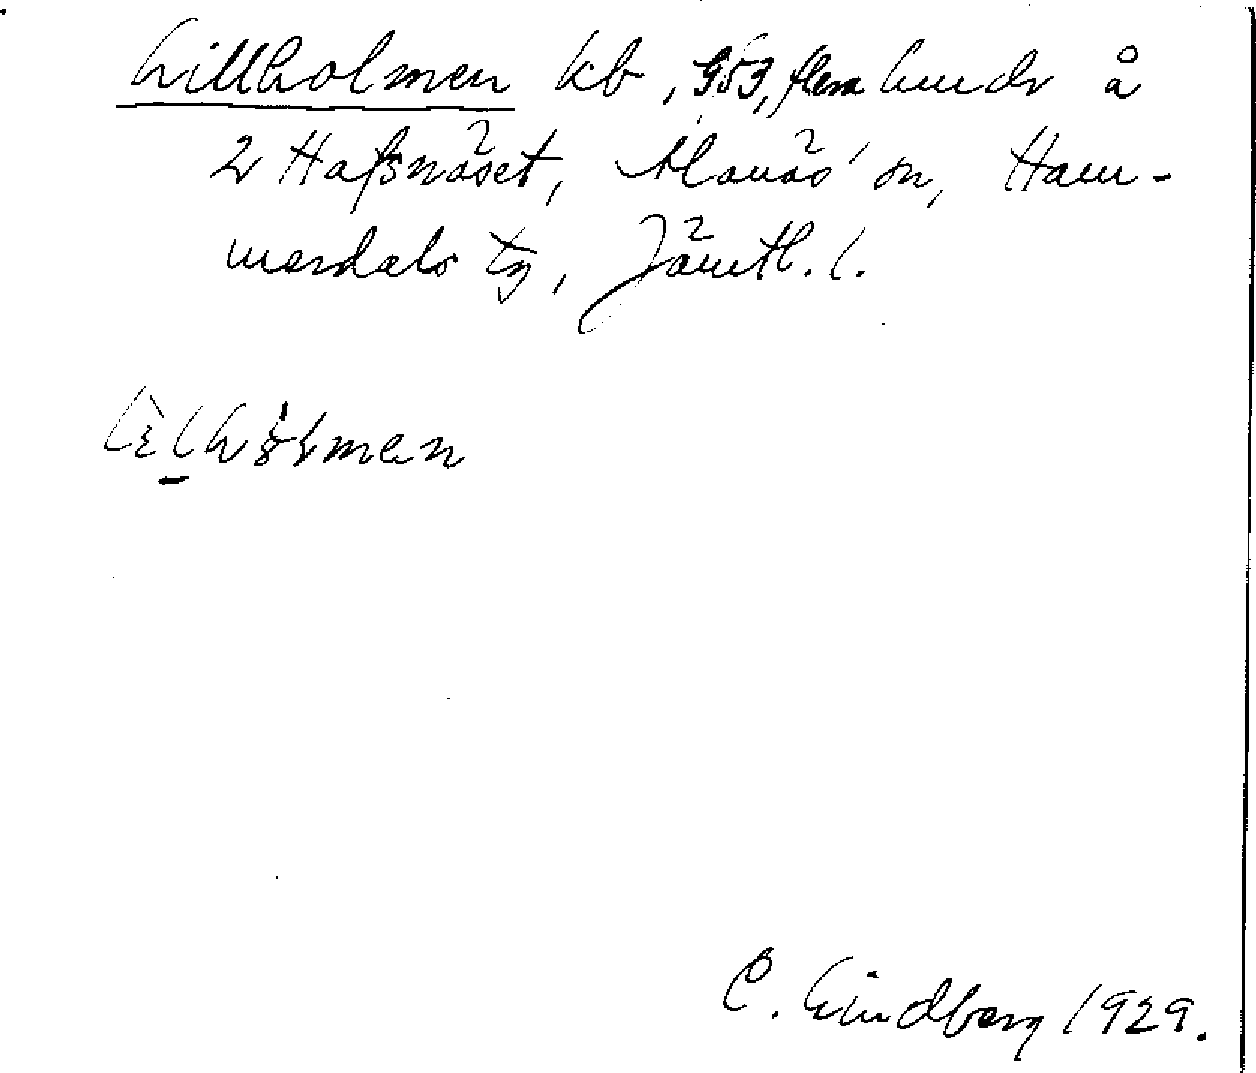 Lillholmen kb, flera hundr å
2 Hafsnäset, Alanäs sn, Ham-
merdals tg, Jämtl. l.
C. Lindberg 1929.